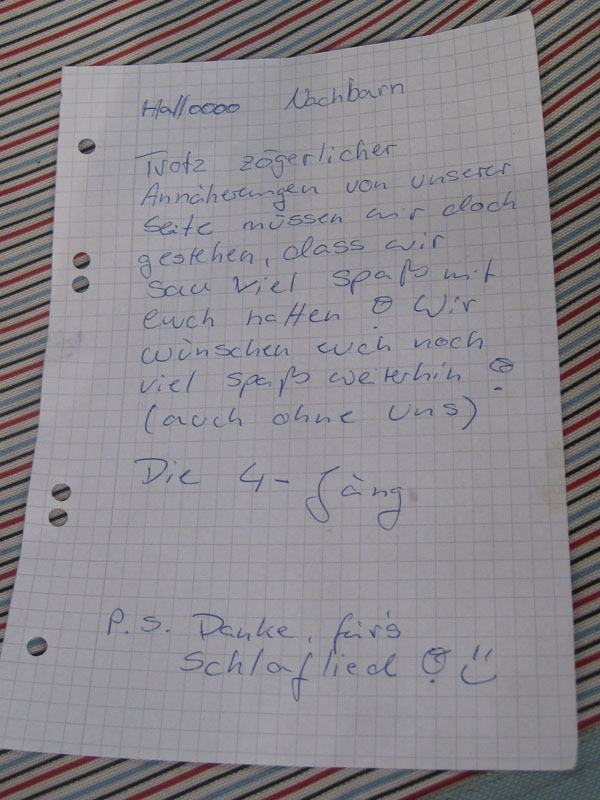 Halloooo Nachbarn
Trotz zögerlicher
Annäherungen von unserer
Seite müssen wir doch
gestehen, dass wir
sau viel spaß mit
euch hatten ! Wir
wünschen euch noch
viel spaß weiterhin !
(auch ohne uns)
Die 4-Gäng
P.S. Danke, für's
Schlaflied !